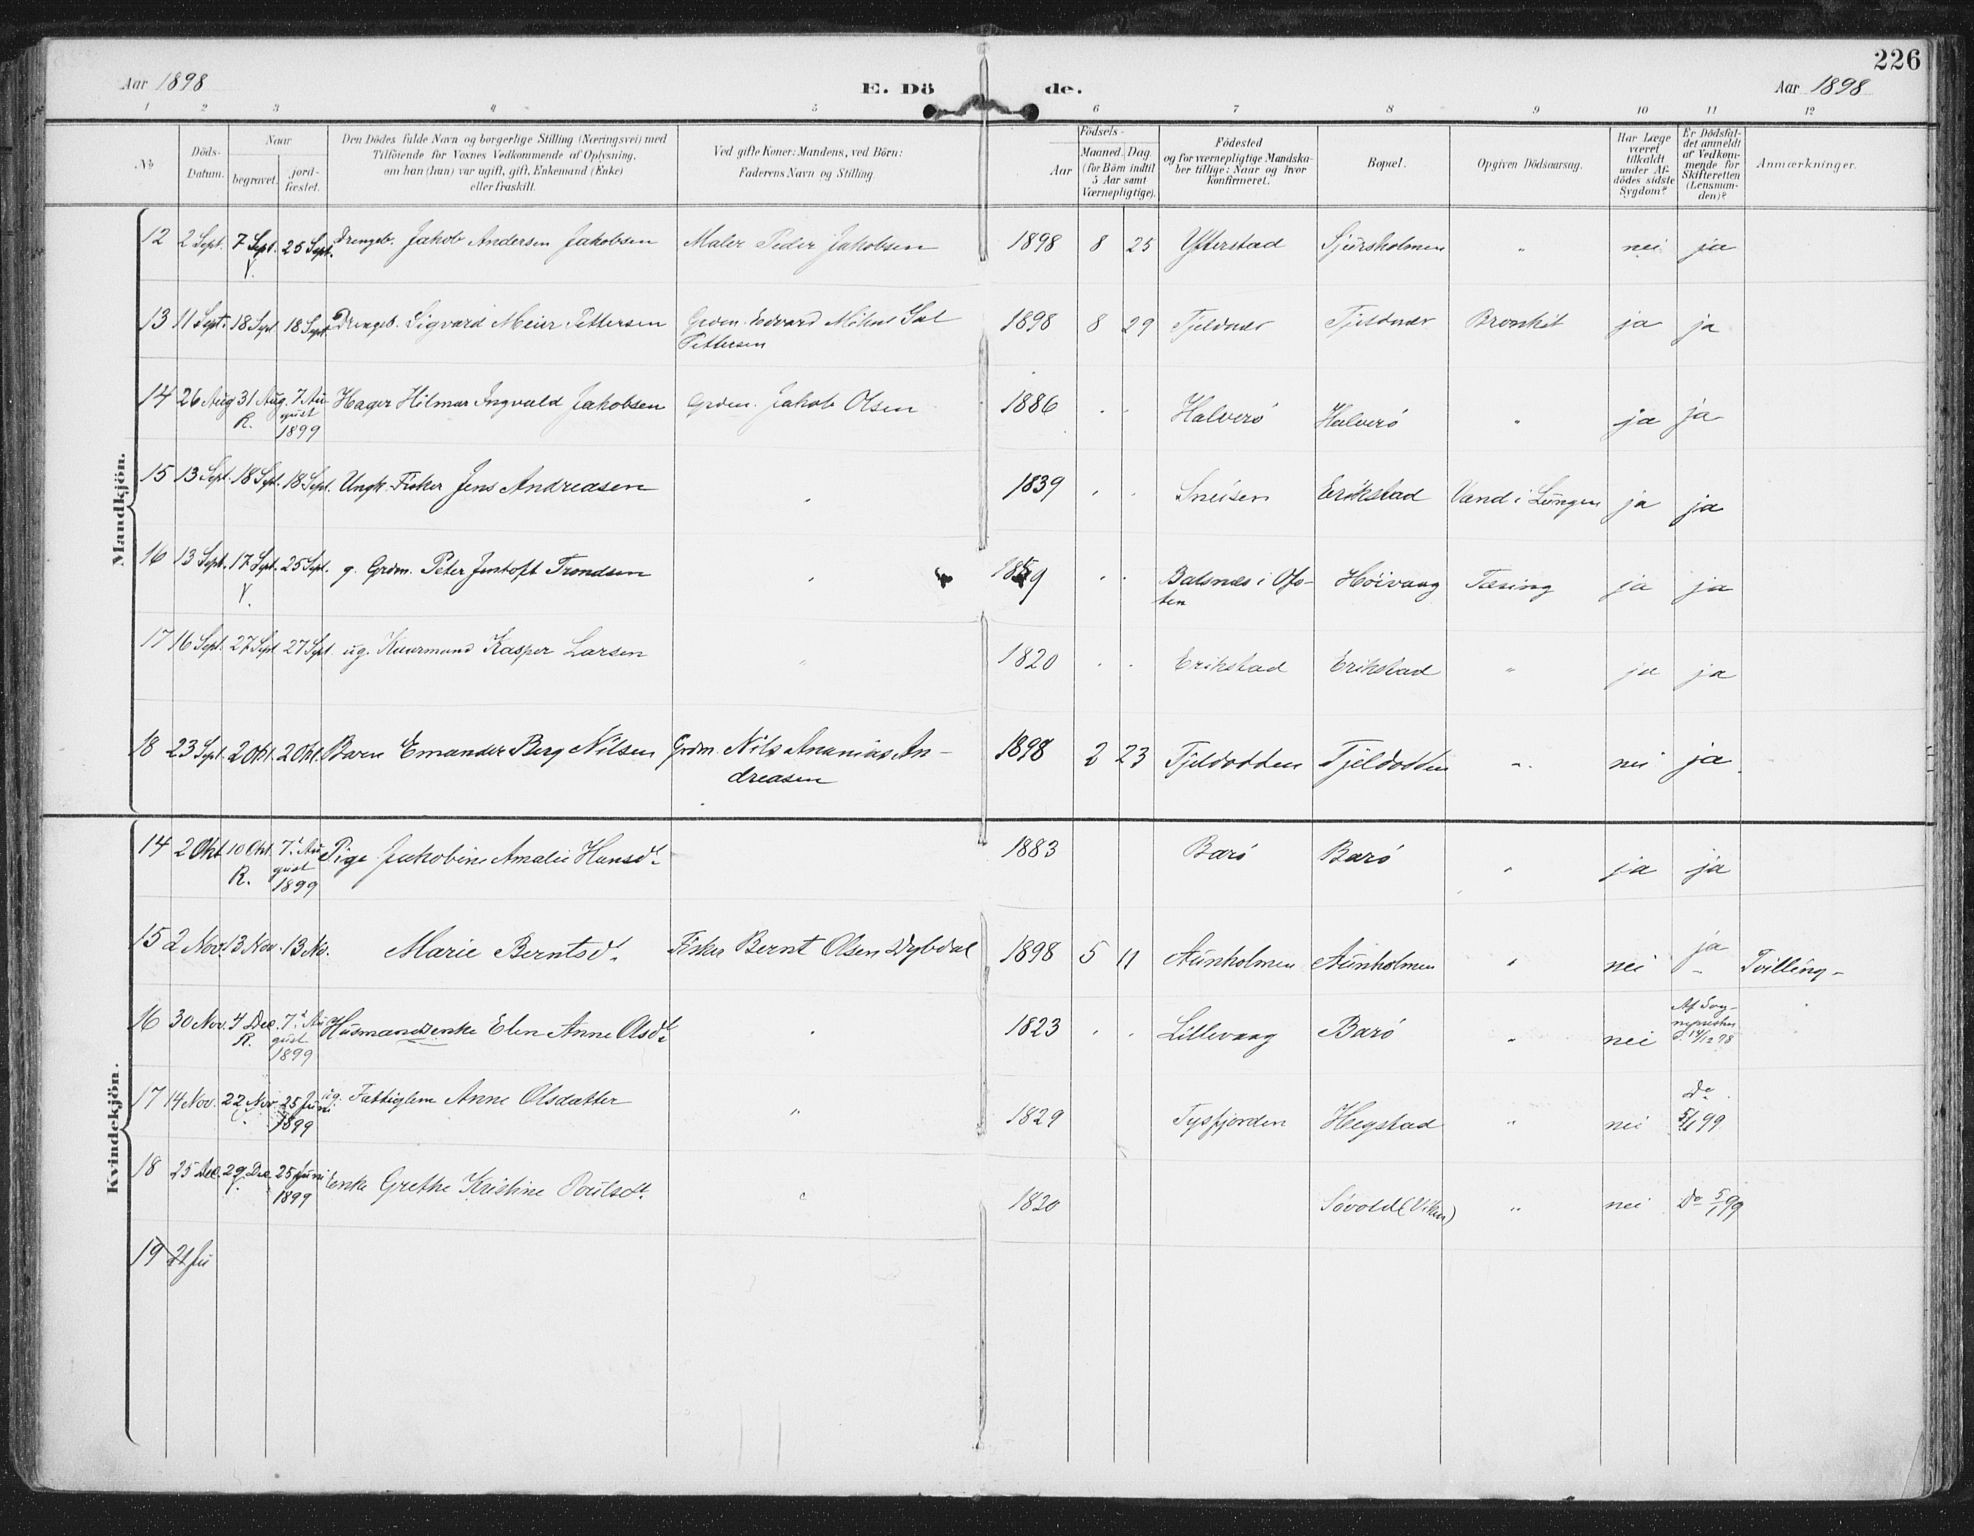 226
Aar 1898 E. Dö de. Aar 1898
1 2 3 4 5 6 7 8 9 10 11 12
No
Döds-Datum.
Naar
begravet.
jord-fæstet.
Den Dödes fulde Navn og borgerlige Stilling (Næringsvei) med
Tilföiende for Voxnes Vedkommende af Oplysning,
om han (hun) var ugift, gift, Enkemand (Enke)
eller fraskilt.
Ved gifte Koner: Mandens, ved Börn:
Faderens Navn og Stilling.
Aar
Födsels-
Maaned. Dag.
(for Börn indtil
5 Aar samt
Værnepligtige).
Födested
og for værnepligtige Mandska-
ber tillige: Naar og hvor
konfirmeret.
Bopæl.
Opgiven Dödsaarsag.
Har Læge
været
tilkaldt
under Af-
dödes sidste
Sygdom?
Er Dödsfal-
det anmeldt
af Vedkom-
mende for
Skifteretten
(Lensman-
den)?
Anmærkninger.
Mandkjön.
12 2 Sept. 7 Sept. V. 25 Sept. Drengeb. Jakob Andersen Jakobsen Maler Peder Jakobsen 1898 8 25 Ytterstad Sjursholmen " nei ja
13 11 Sept. 18 Sept 18 Sept. Drengeb. Sigvard Meier Pettersen Grdm. Edvard Mikal Pettersen 1898 8 29 Tjeldnæs Tjeldnæs Bronkit ja ja
14 26 Aug 31 Aug. R. 7 August 1899 Hager Hilmar Ingvald Jakobsen Grdm. Jakob Olsen 1886 " " Halverö Halverö " ja ja
15 13 Sept. 18 Sept. 18 Sept. Ungk. Fisker Jens Andreasen " 1839 " " Sneisen Erikstad Vand i Lungen ja ja
16 13 Sept. 17 Sept. V. 25 Sept. g. Grdm. Peter Justoft Trondsen " " " Balsnes i Ofoten Höivaag Tæring ja ja
17 16 Sept. 27 Sept 27 Sept. ug. Kaarmand Kasper Larsen " 1820 " " Erikstad Erikstad " ja ja
18 23 Sept. 2 Okt. 2 Okt. Barn Emander Berg Nilsen Grdm. Nils Ananias Andreasen 1898 2 23 Tjeldodden Tjeldodden " nei ja.
Kvindekjön.
14 2 Okt 10 Okt. R. 7de August 1899 Pige Jakobine Amalie Hansdt. 1883 Barö Barö " ja ja
15 2 Nov. 13 Nov. 13 No. Marie Berntsdt. Fisker Bernt Olsen Dybdal 1898 5 11 Aunholmen Aunholmen " nei ja Tvilling
16 30 Nov. 4 Dec. R. 7de August 1899 Husmandsenke Elen Anne Olsdt. " 1823 " " Lillevaag Barö " nei Af Sognepresten d. 14/12 98
17 14 Nov. 22 Nov. 25 Juni 1899 ug. Fattiglem Anne Olsdatter " 1829 Tysfjorden Hegstad " nei Do 5/1 99
18 25 Dec. 29 Dec. 25 Juni 1899 Enke Grethe Kristine Poulsdt. " 1820 Søvold (Viken) " nei Do 5/1 99
19 21 Ju